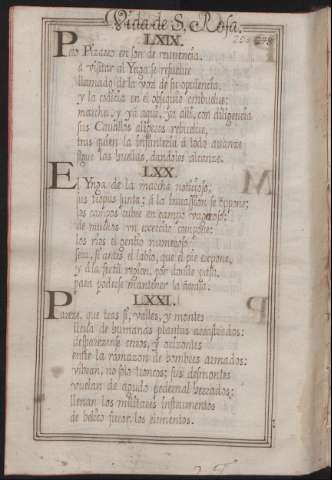 Vida de S. Rosa.
LXIX.
Pero Pizarro en son de reuerencia,
a visitar al Ynga se resuelue
llamado de la voz de su opulencia,
y la codicia en el obsequio embuelue:
marcha, y ya aquí, ya allí, con diligencia
sus Cauallos alígeros rebuelue,
tras quien la infantería a todo
sigue las huellas, dandoles alcanze.
LXX.
El Ynga de la marcha noticioso,
sus tropas junta; á la inuassion se oppone;
los campos cubre en campo
de muchos un exercito compone:
los rios el gentio numeroso
seca, si antes el labio, que el pie expone,
y á la fertil region, por donde passa,
para poderse mantener la
LXXI.
Parece, que tras sí, valles, y montes
lleua de humanas plantas
desparecense cerros, y orizontes
entre la ramazon de hombres armados:
vibran, no solo troncos; sus desmontes
vuelan de agudo pedernal herrados;
llenan los militares instrumentos
de belico furor, los elementos.